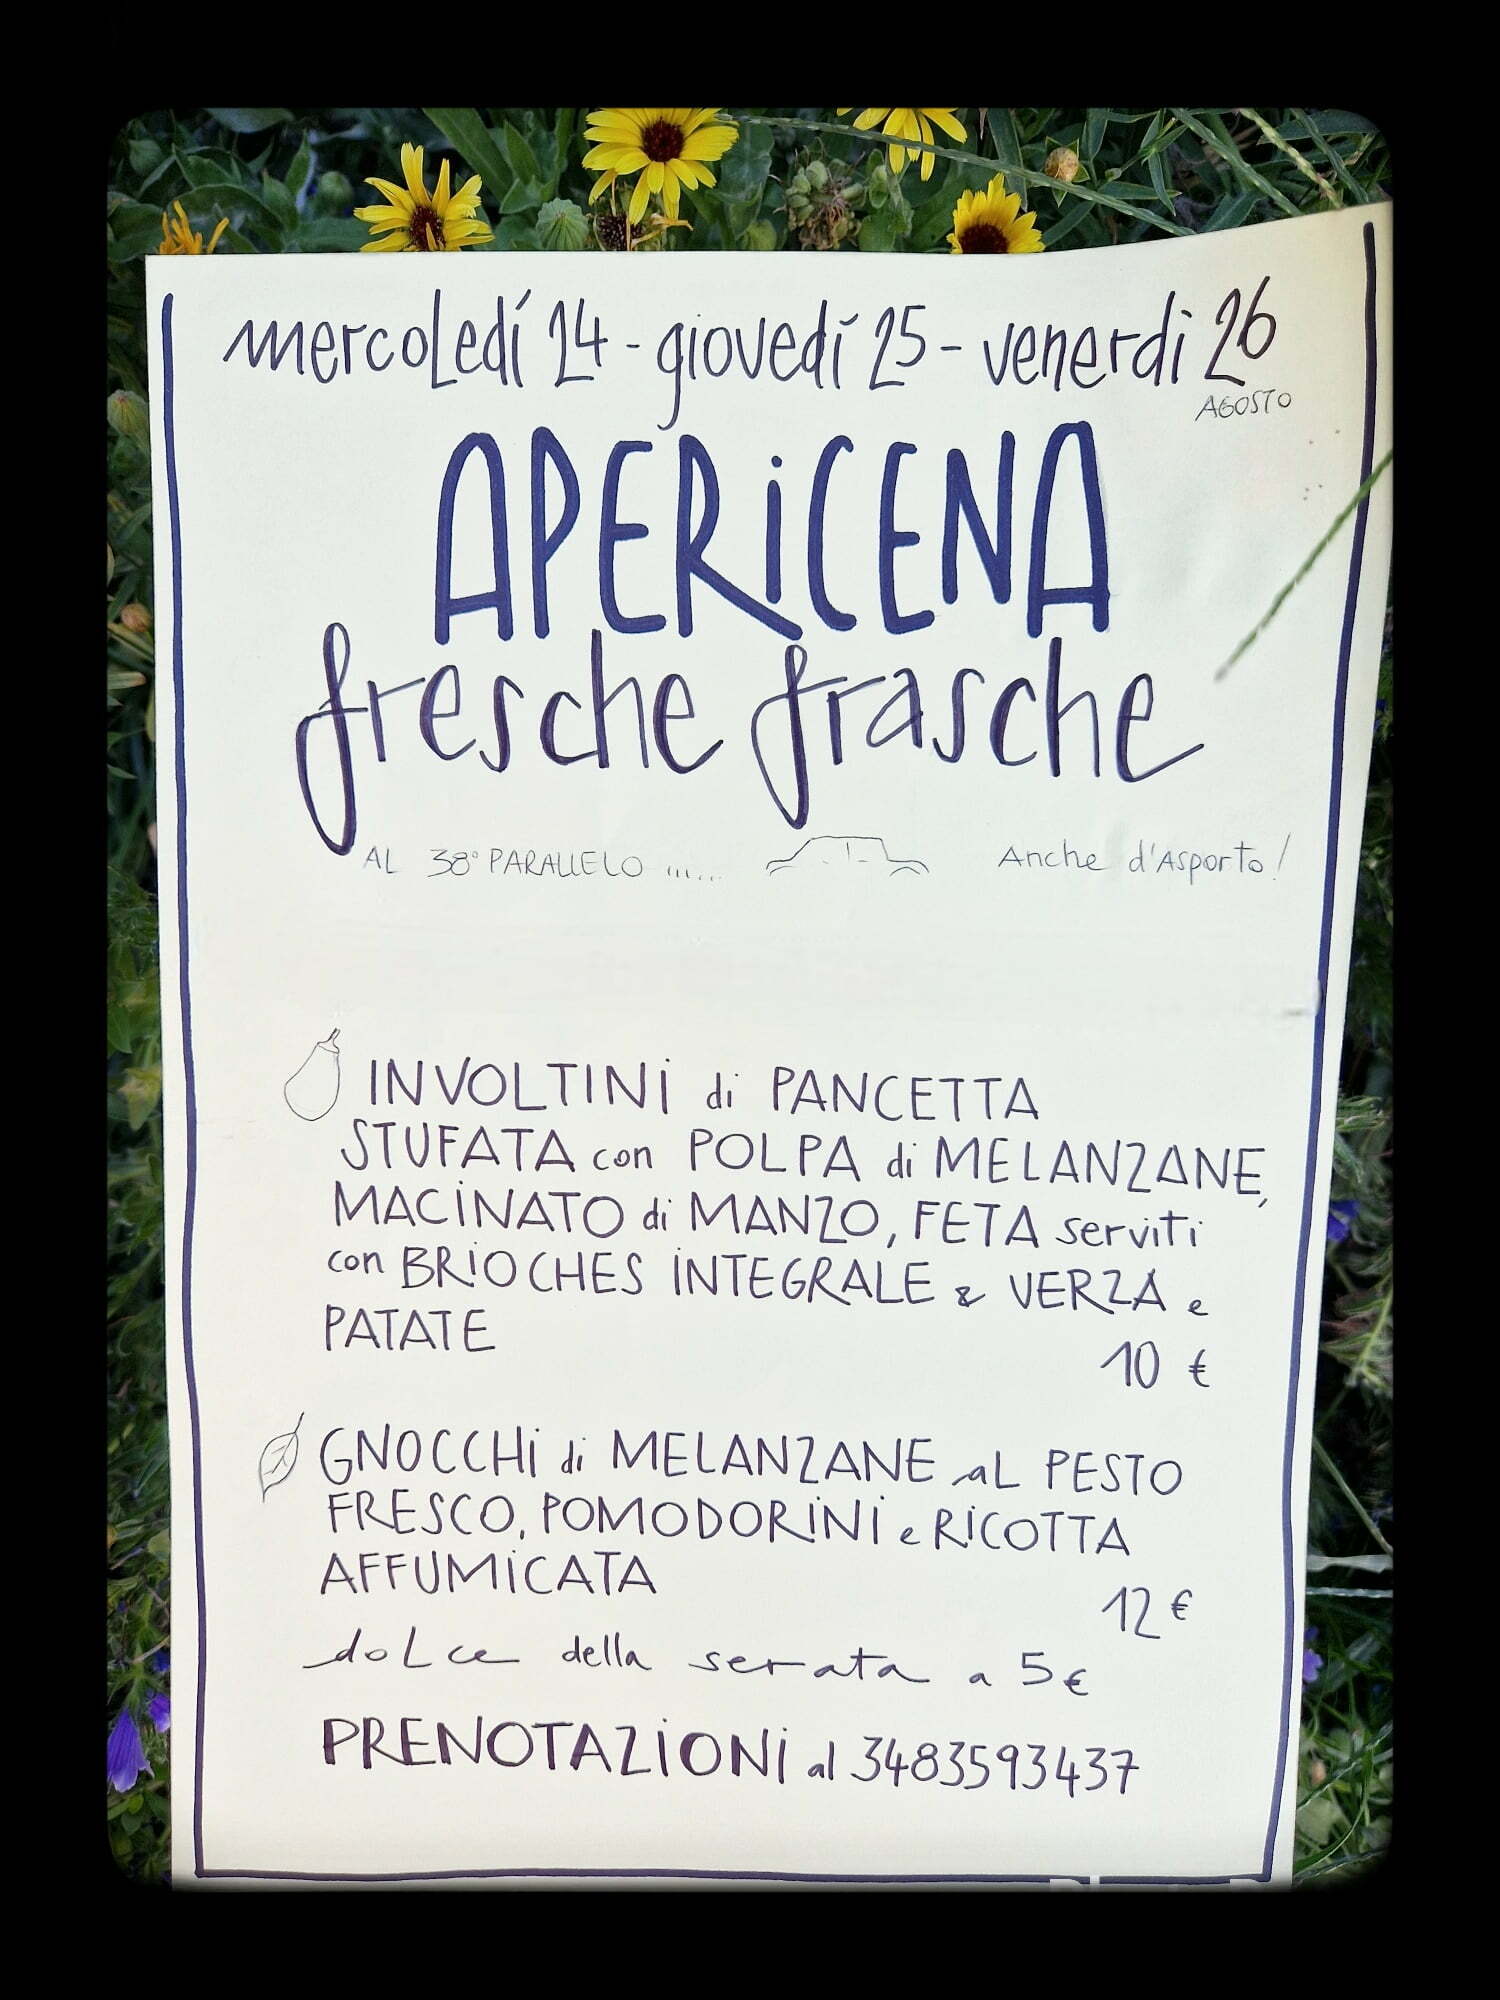 mercoledí 24 - giovedí 25 - venerdi 26
AGOSTO
APERiCENA
fresche frasche
AL 38° PARALLELO ...... Anche d'Asporto!
INVOLTINi di PANCETTA
STUFATA con POLPA di MELANZANE,
MACiNATO di MANZO, FETA serviti
con BRiOCHES iNTEGRALE & VERZA e
PATATE
10 €
GNOCCHi di MELANZANE aL PESTO
FRESCO, POMODORiNi e RiCOTTA
AFFUMiCATA
12 €
doLce della serata a 5 €
PRENOTAZiONi al 3483593437